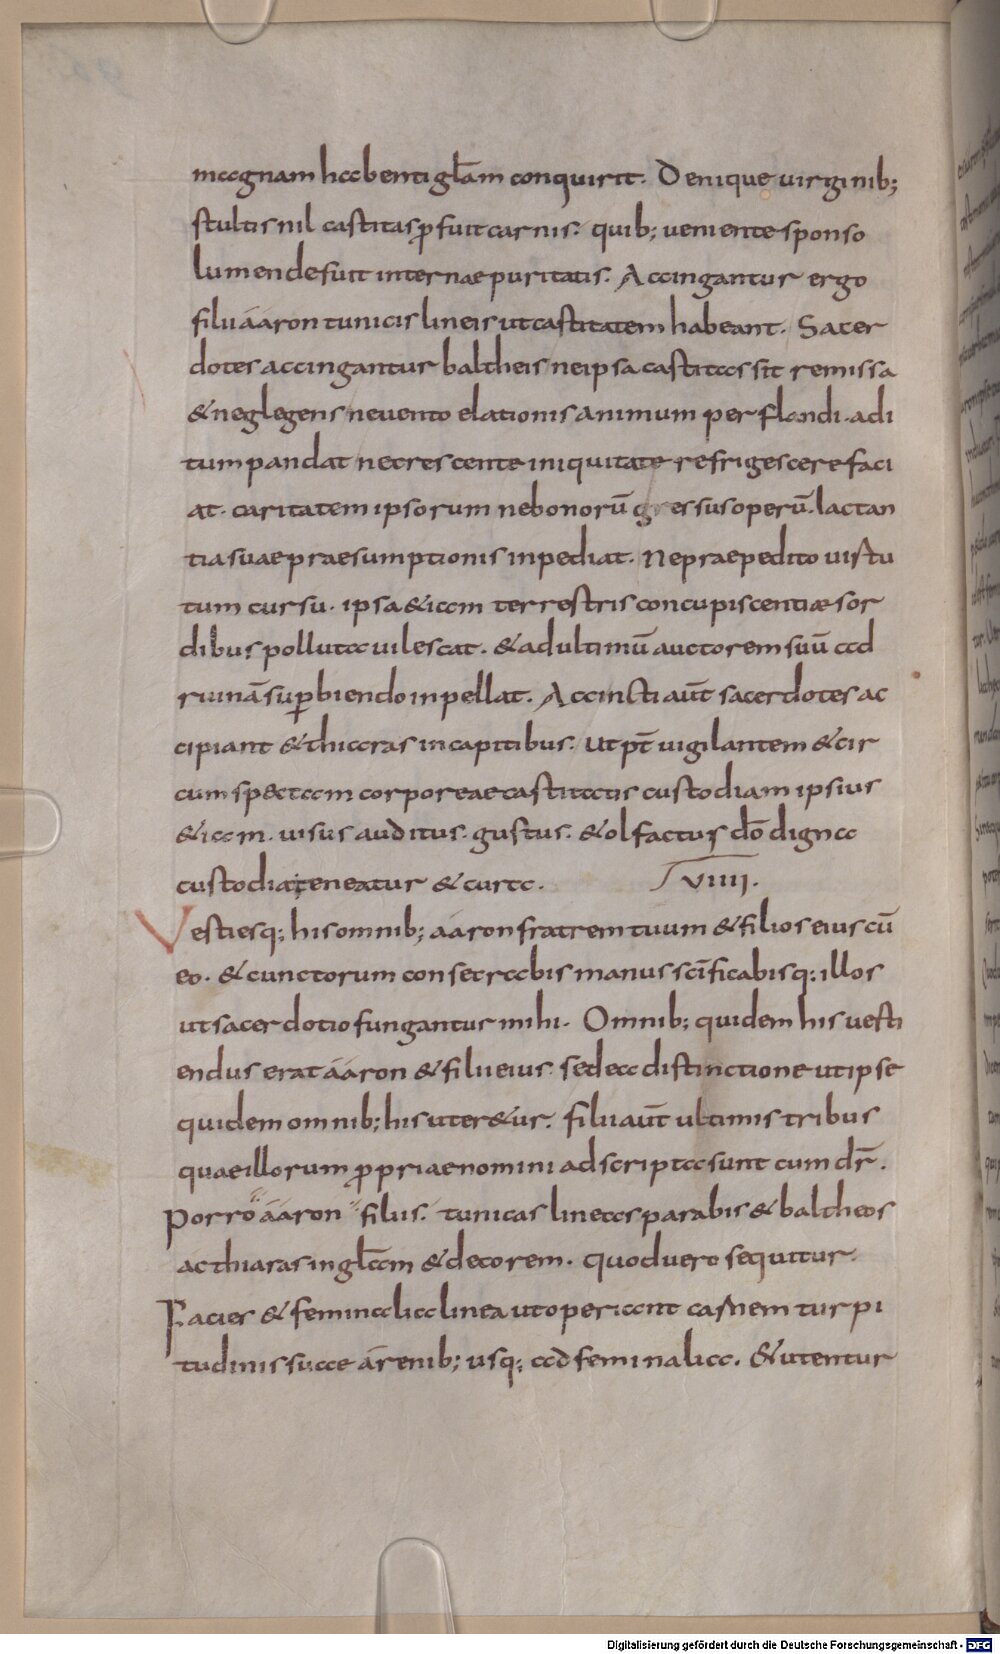 magnam habenti glām conquirit. Denique uirginib;
stultis nil castitas ꝓfuit carnis. quib; ueniente sponso
lumen defuit internae puritatis. Accingantur ergo
filii aaron tunicis lineis ut castitatem habeant. Sacer
dotes accingantur baltheis ne ipsa castitas sit remissa
& neglegens ne uento elationis animum perflandi. adi
tum pandat ne crescente iniquitate refrigescere faci
at. caritatem ipsorum ne bonorū gressus operū. lactan
tia suae praesumptionis inpediat. Ne praepedito uistu
tum cursu. ipsa &iam terrestris concupiscentiæ sor
dibus polluta uilescat. & ad ultimū auctorem suū ad
ruinā suꝑbiendo inpellat. Accincti aūt sacerdotes ac
cipiant & thiaras in capitibus. Ut pt̄ uigilantem & cir
cumsp&tam corporeae castitatis custodiam ipsius
&iam. uisus auditus. gustus. & olfactus dō digna
custodia teneatur & cura. VIIII.
Vestiesq; his omnib; aaron fratrem tuum & filios eius cū
eo. & cunctorum consecrabis manus scīficabisq; illos
ut sacerdotio fungantur mihi. Omnib; quidem his uesti
endus erat aaron & filii eius. sed ea distinctione ut ipse
quidem omnib; his uter&ur. filii aūt ultimis tribus
quae illorum ꝓpriae nomini adscripta sunt cum dr̄.
Porro aaron filiis. tunicas lineas parabis & baltheos
ac thiaras in glam & decorem. quod uero sequitur.
Facies & feminalia linea ut operiant carnem turpi
tudinis suae a renib; usq; ad feminalia. & utentur
Digitalisierung gefördert durch die Deutsche Forschungsgemeinschaft - DFG